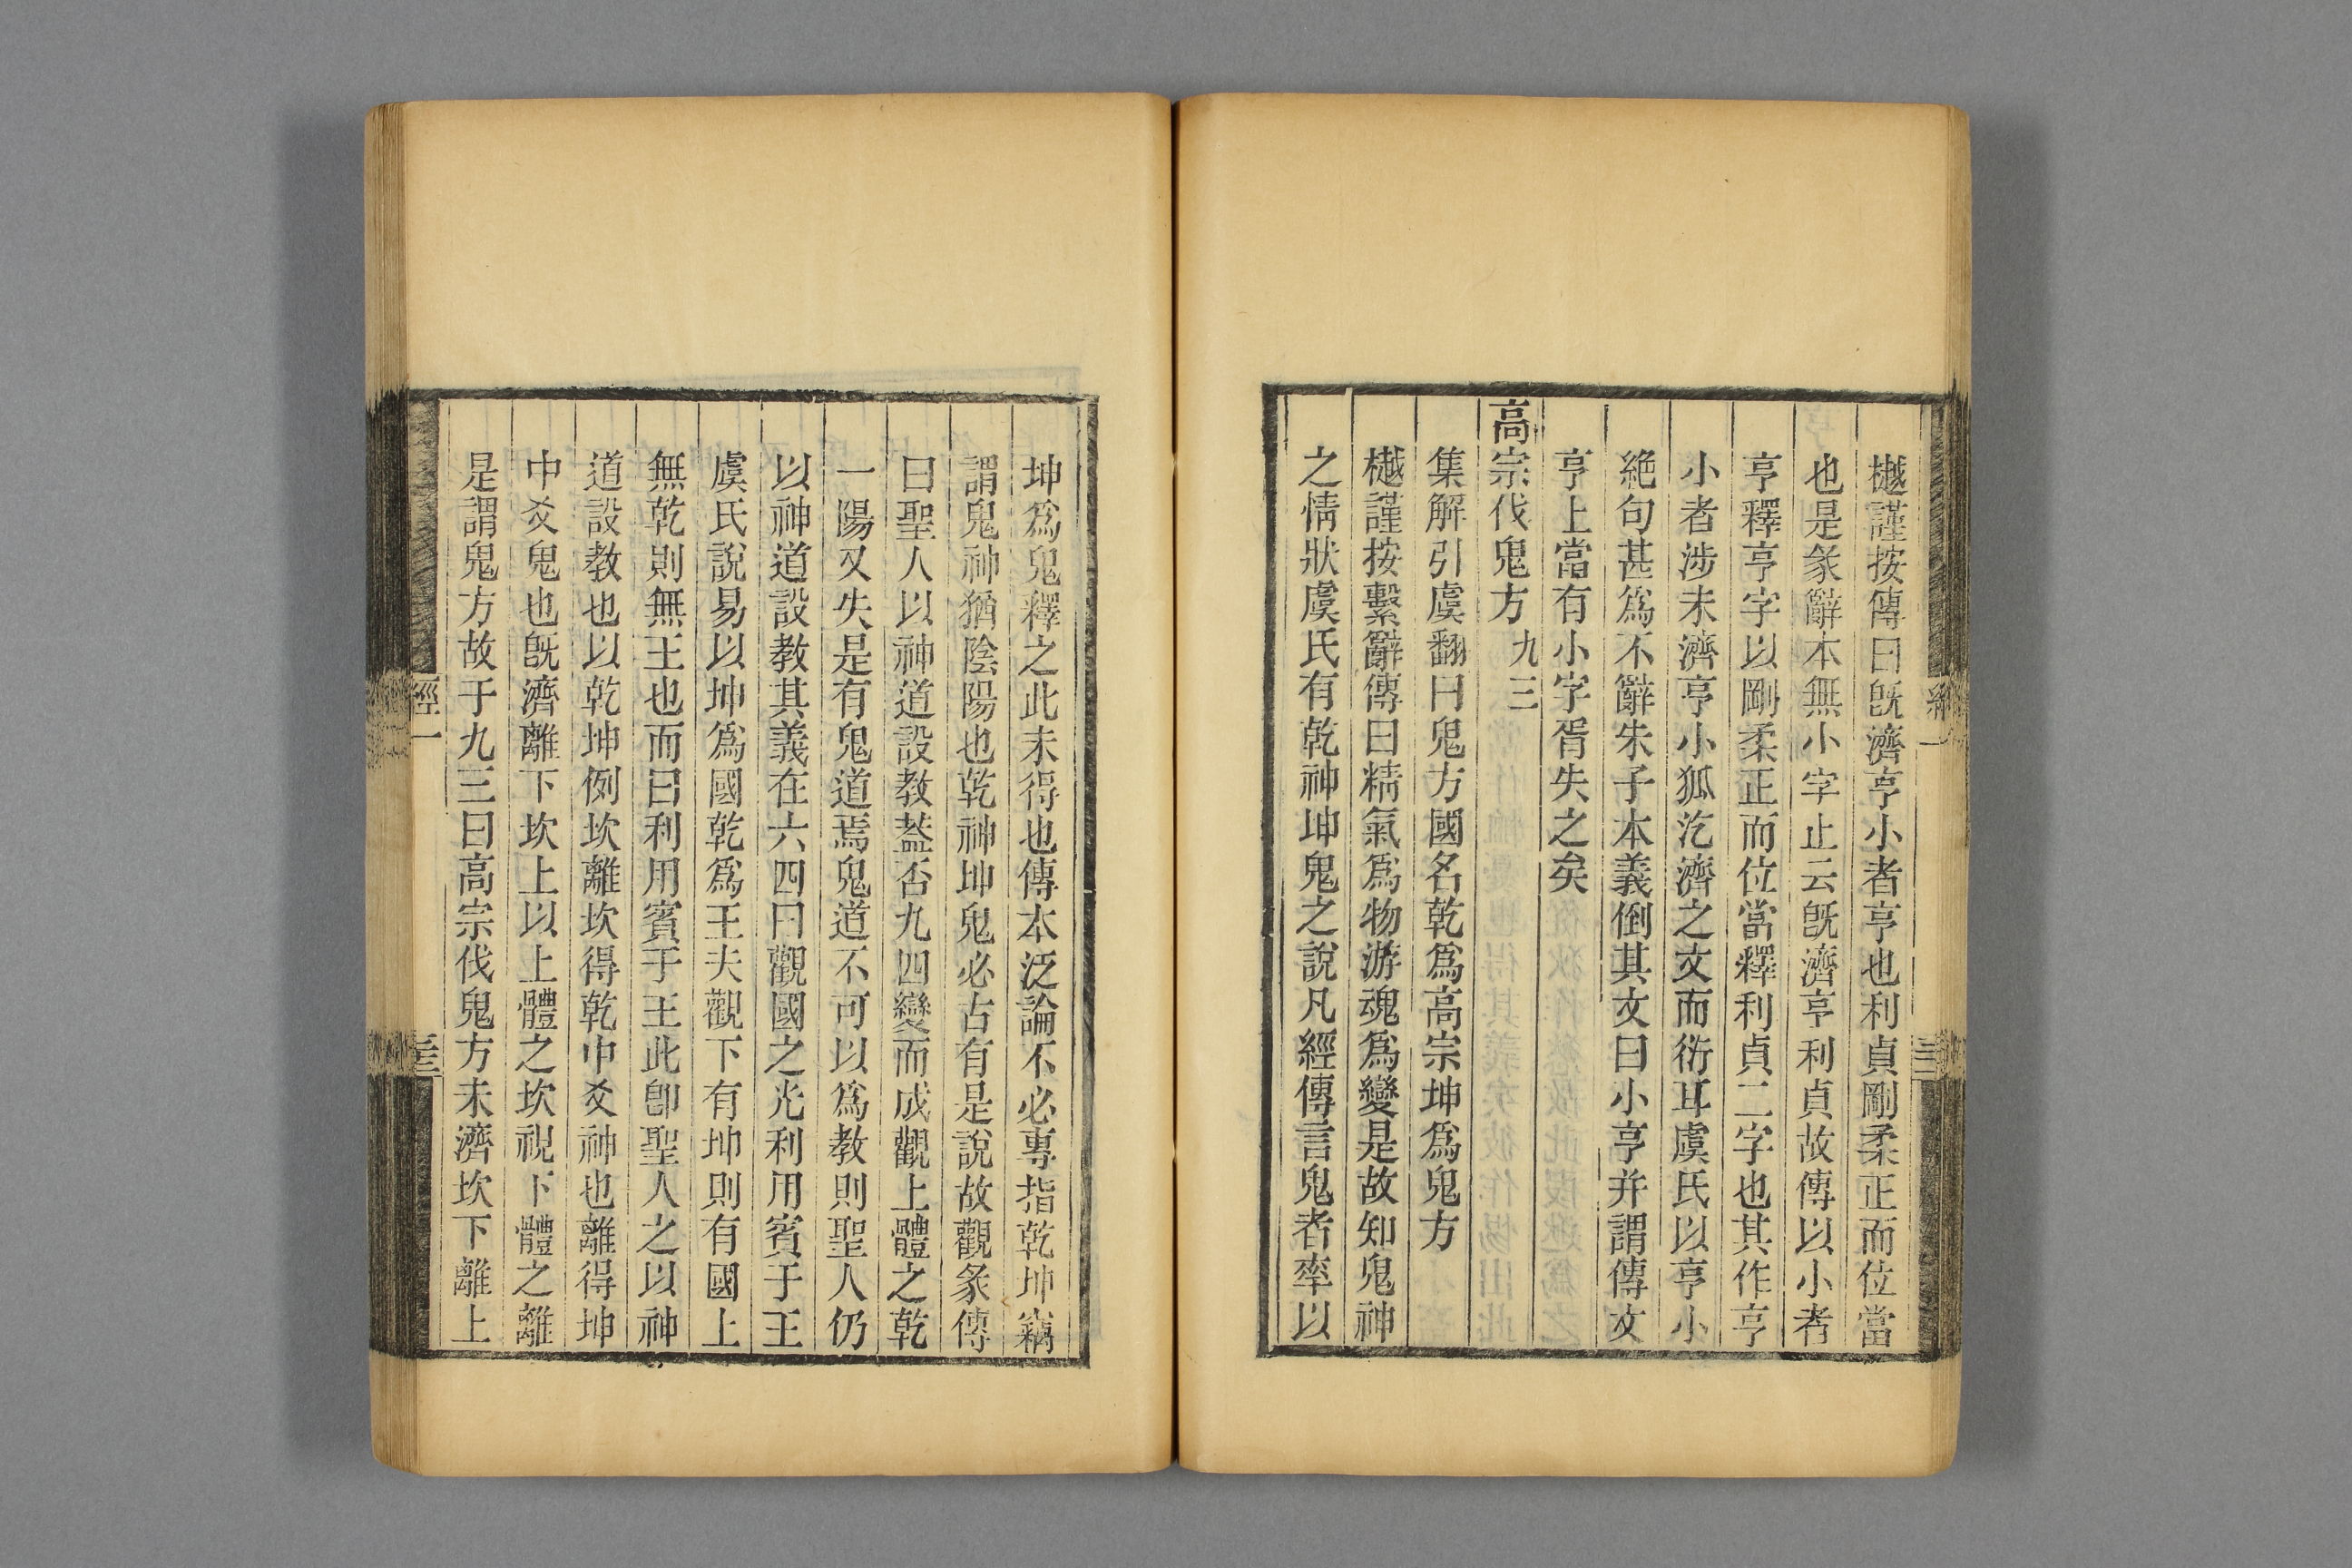 樾謹按傳曰旣濟亨小者亨也利貞剛柔正而位當
也是彖辭本無小字止云旣濟亨利貞故傳以小者
亨釋亨字以剛柔正而位當釋利貞二字也其作亨
小者涉未濟亨小狐汔濟之文而衍耳虞氏以亨小
絶句甚爲不辭朱子本義倒其文曰小亨并謂傳文
亨上當有小字胥失之矣
高宗伐鬼方 九三
集解引虞翻曰鬼方國名乾爲高宗坤爲鬼方
樾謹按繫辭傳曰精氣爲物游魂爲變是故知鬼神
之情狀虞氏有乾神坤鬼之說凡經傳言鬼者率以
坤爲鬼釋之此未得也傳本泛論不必專指乾坤竊
謂鬼神猶陰陽也乾神坤鬼必古有是說故觀彖傳
曰聖人以神道設教葢否九四變而成觀上體之乾
一陽又失是有鬼道焉鬼道不可以爲教則聖人仍
以神道設教其義在六四曰觀國之光利用賓于王
虞氏說易以坤爲國乾爲王夫觀下有坤則有國上
無乾則無王也而曰利用賓于王此卽聖人之以神
道設教也以乾坤例坎離坎得乾中爻神也離得坤
中爻鬼也旣濟離下坎上以上體之坎視下體之離
是謂鬼方故于九三曰高宗伐鬼方未濟坎下離上
經一